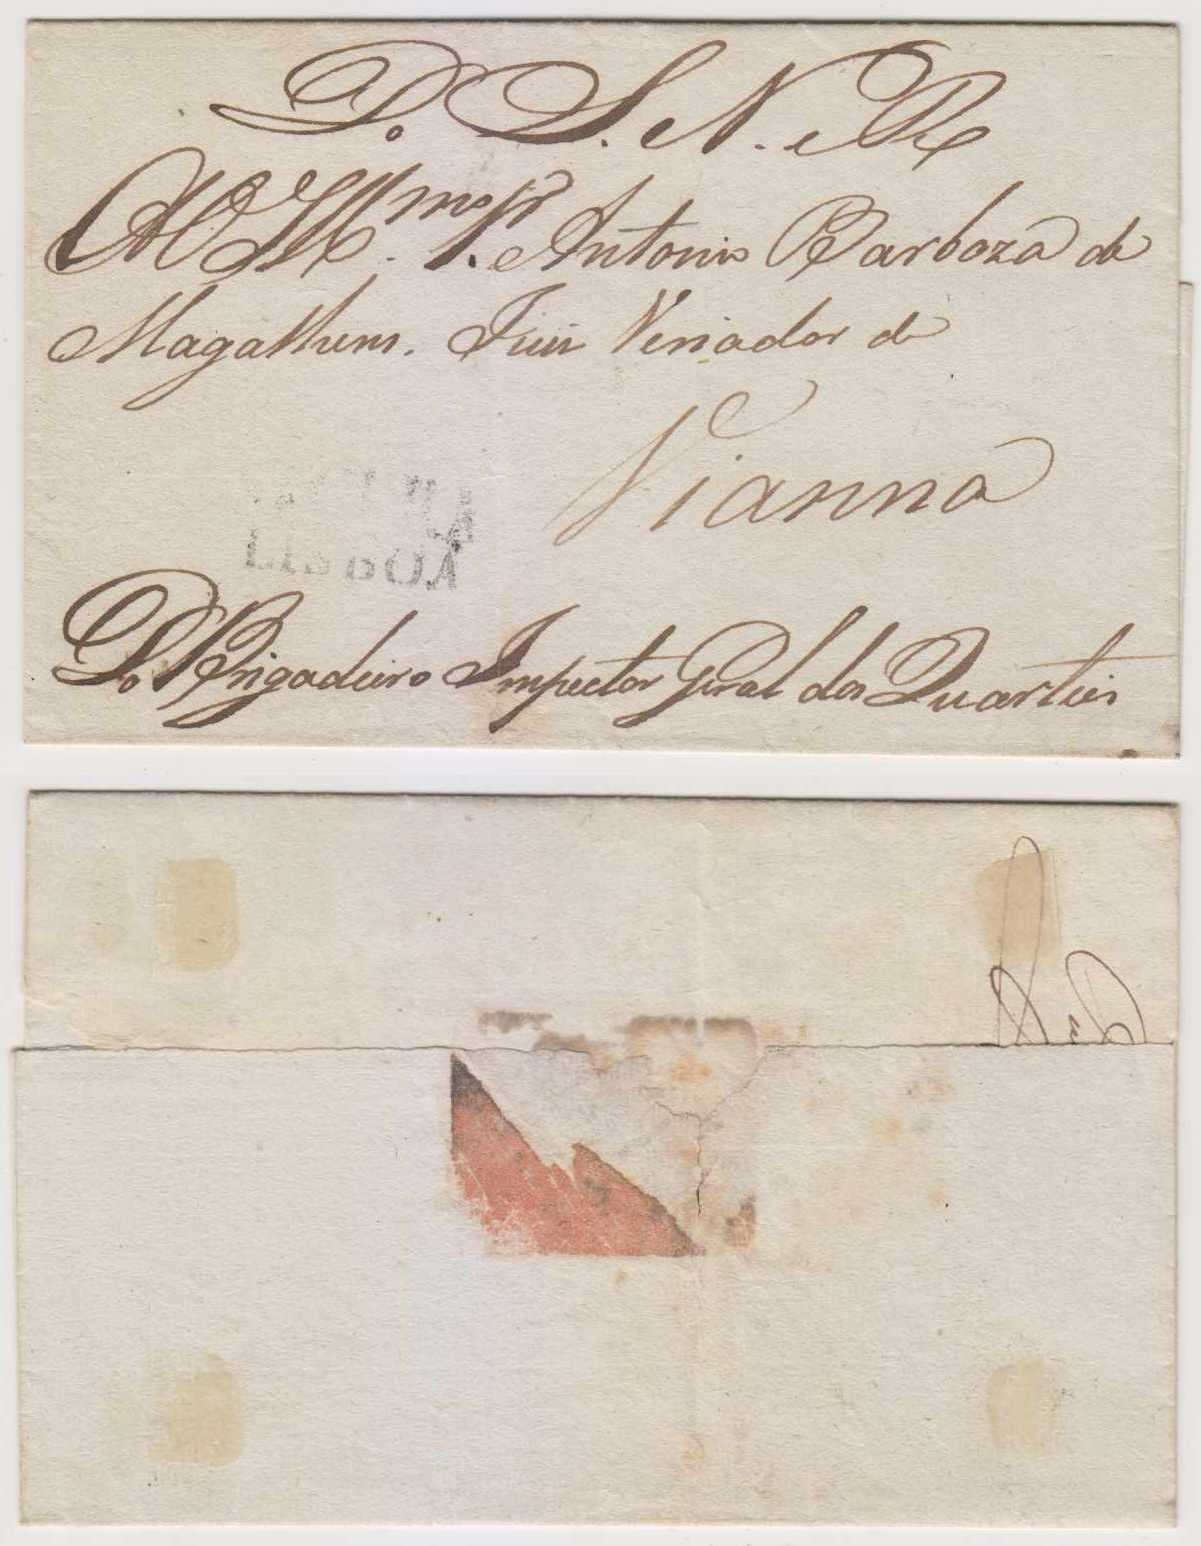 Do S. N. e R
Ao Illmo. Sr. Antonio Barboza de
Magalhens. Juiz Veriador de
Vianna
LISBOA
Do Brigadeiro Inspector Geral dos Quarteis